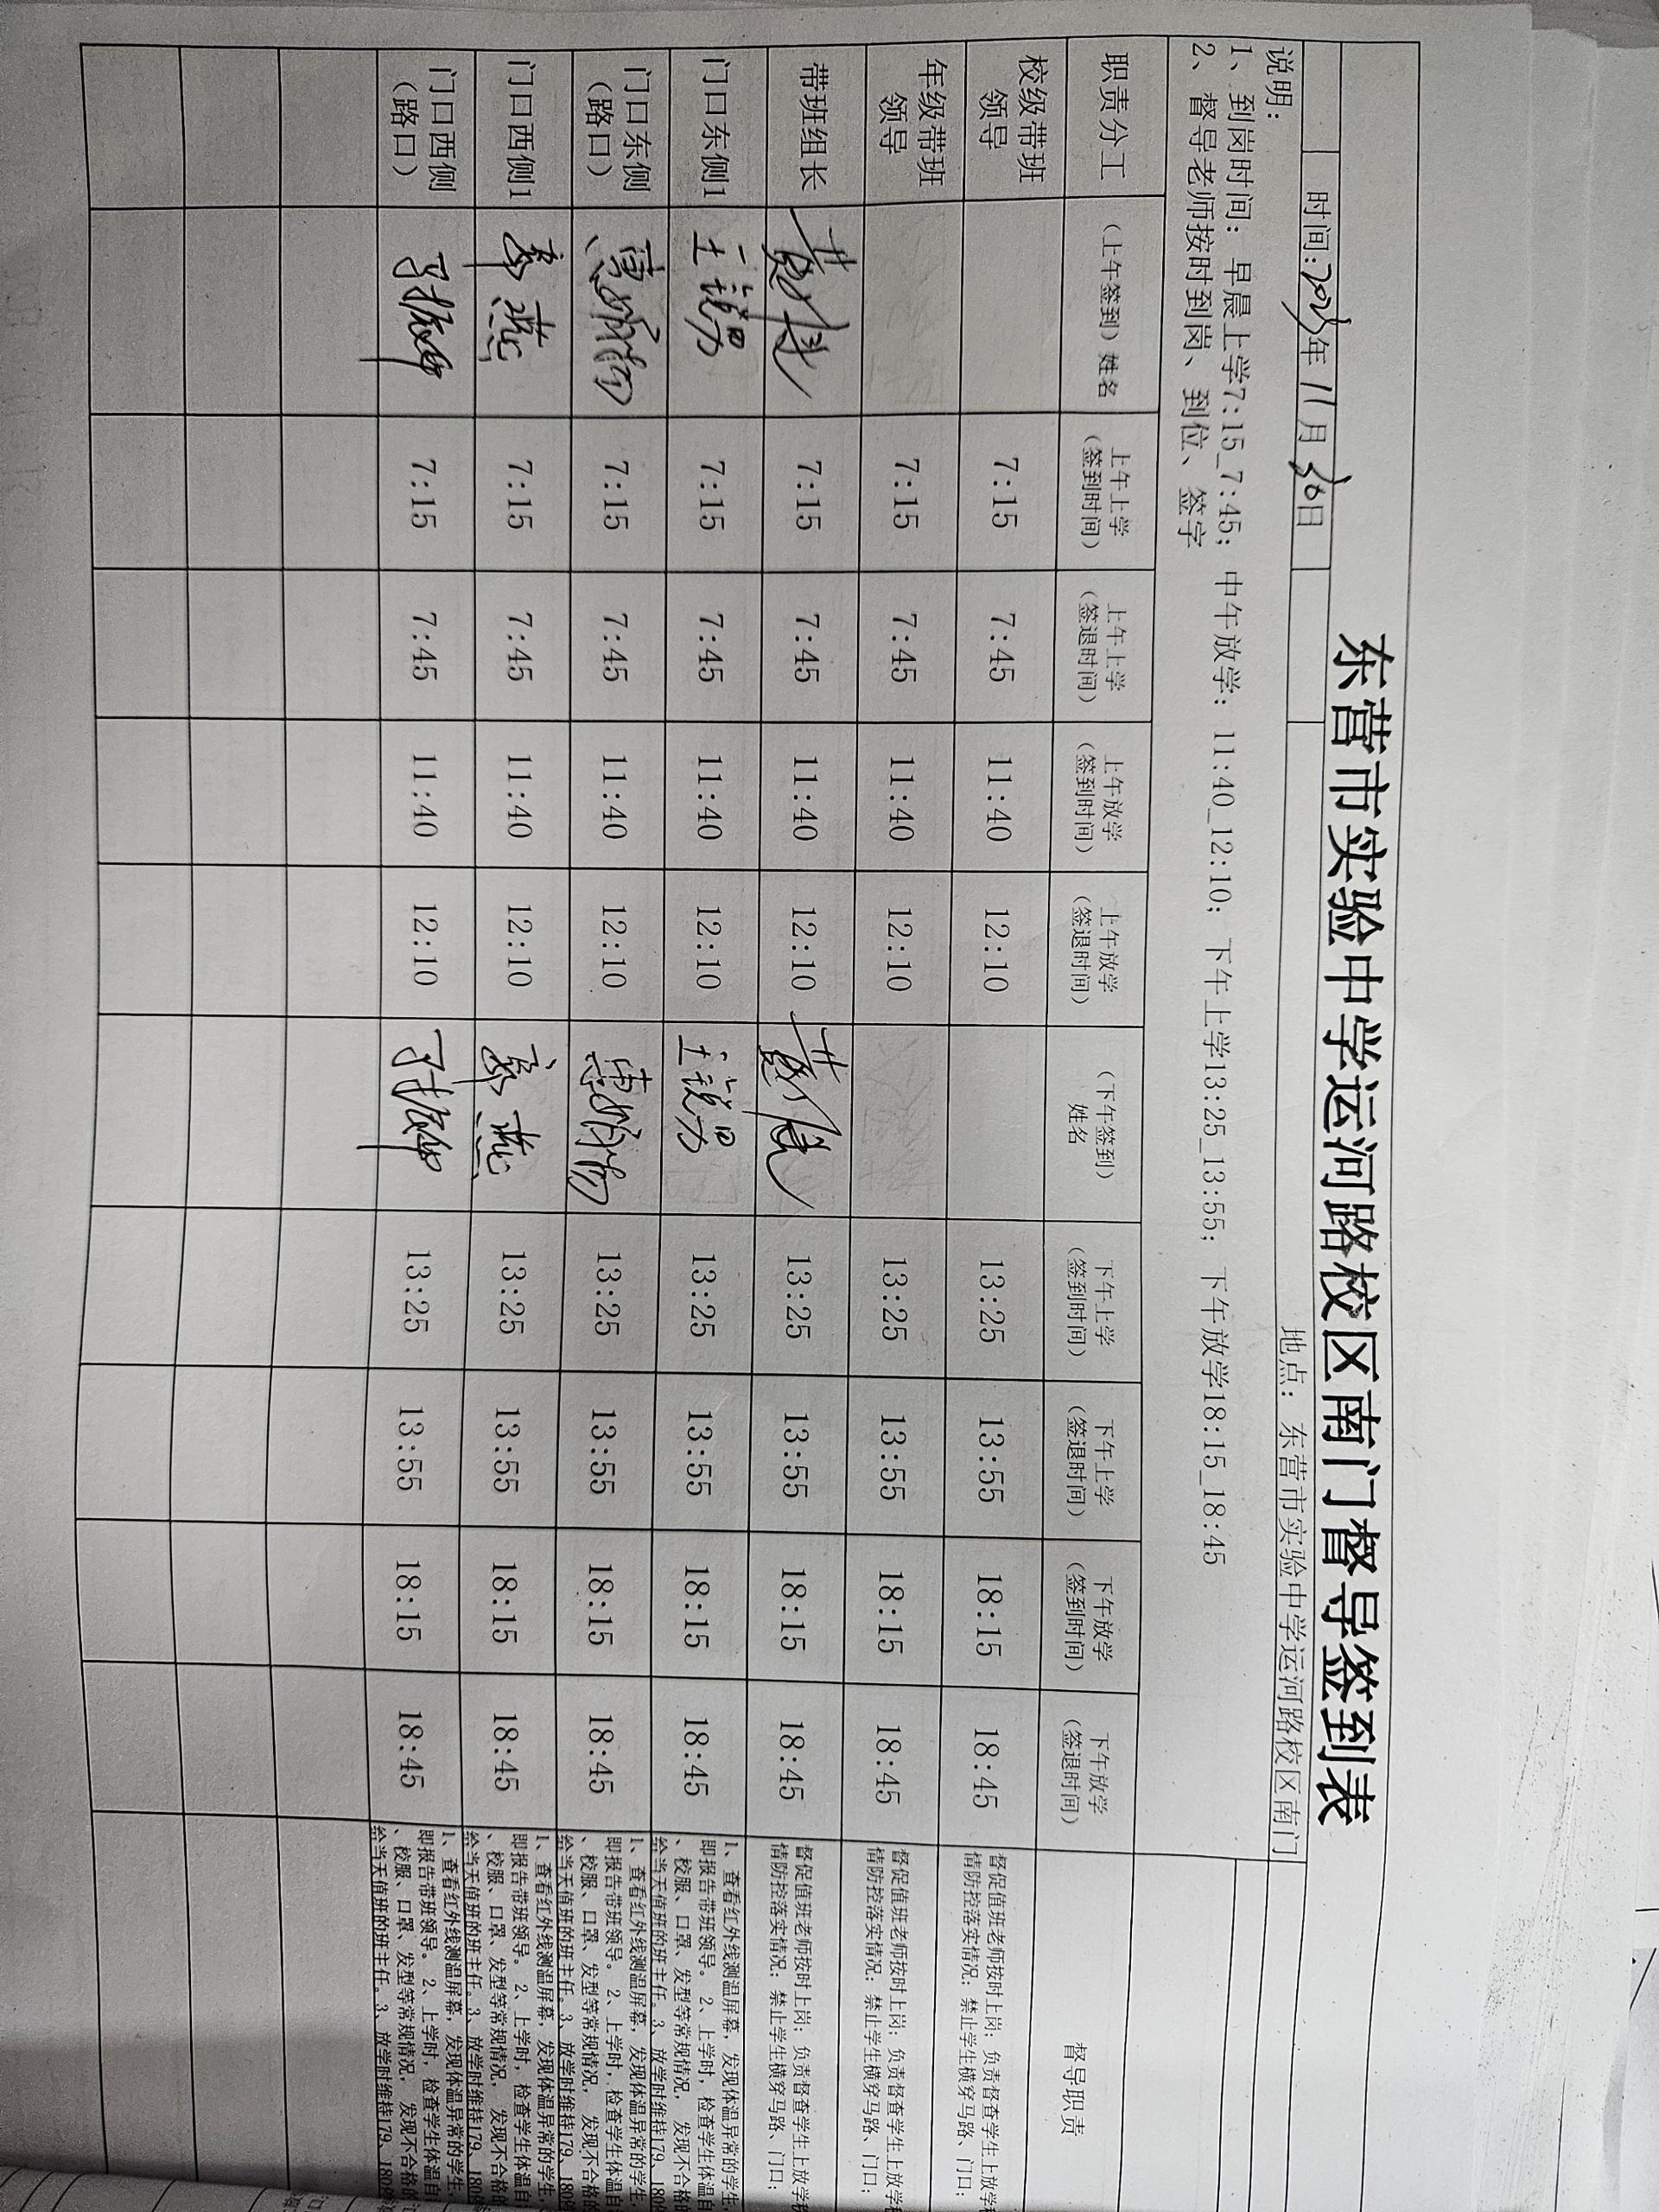 东营市实验中学运河路校区南门督导签到表
时间:2023年11月30日 地点：东营市实验中学运河路校区南门
说明：
1、到岗时间：早晨上学7:15_7:45; 中午放学：11:40_12:10; 下午上学13:25_13:55; 下午放学18:15_18:45
2、督导老师按时到岗、到位、签字
职责分工 （上午签到）姓名 上午上学（签到时间） 上午上学（签退时间） 上午放学（签到时间） 上午放学（签退时间） （下午签到）姓名 下午上学（签到时间） 下午上学（签退时间） 下午放学（签到时间） 下午放学（签退时间） 督导职责
校级带班领导 7:15 7:45 11:40 12:10 13:25 13:55 18:15 18:45 督促值班老师按时上岗；负责督查学生上放学
情防控落实情况；禁止学生横穿马路、门口；
年级带班领导 7:15 7:45 11:40 12:10 13:25 13:55 18:15 18:45 督促值班老师按时上岗；负责督查学生上放学
情防控落实情况；禁止学生横穿马路、门口；
带班组长 7:15 7:45 11:40 12:10 13:25 13:55 18:15 18:45 督促值班老师按时上岗；负责督查学生上放学
情防控落实情况；禁止学生横穿马路、门口；
门口东侧1 7:15 7:45 11:40 12:10 13:25 13:55 18:15 18:45 1、查看红外线测温屏幕，发现体温异常的学生，
即报告带班领导。2、上学时，检查学生体温自
、校服、口罩、发型等常规情况，发现不合格的
给当天值班的班主任。3、放学时维持179、180
门口东侧（路口） 7:15 7:45 11:40 12:10 13:25 13:55 18:15 18:45 1、查看红外线测温屏幕，发现体温异常的学生，
即报告带班领导。2、上学时，检查学生体温自
、校服、口罩、发型等常规情况，发现不合格的
给当天值班的班主任。3、放学时维持179、180
门口西侧1 燕 7:15 7:45 11:40 12:10 燕 13:25 13:55 18:15 18:45 1、查看红外线测温屏幕，发现体温异常的学生，
即报告带班领导。2、上学时，检查学生体温自
、校服、口罩、发型等常规情况，发现不合格的
给当天值班的班主任。3、放学时维持179、180
门口西侧（路口） 7:15 7:45 11:40 12:10 13:25 13:55 18:15 18:45 1、查看红外线测温屏幕，发现体温异常的学生，
即报告带班领导。2、上学时，检查学生体温自
、校服、口罩、发型等常规情况，发现不合格的
给当天值班的班主任。3、放学时维持179、180